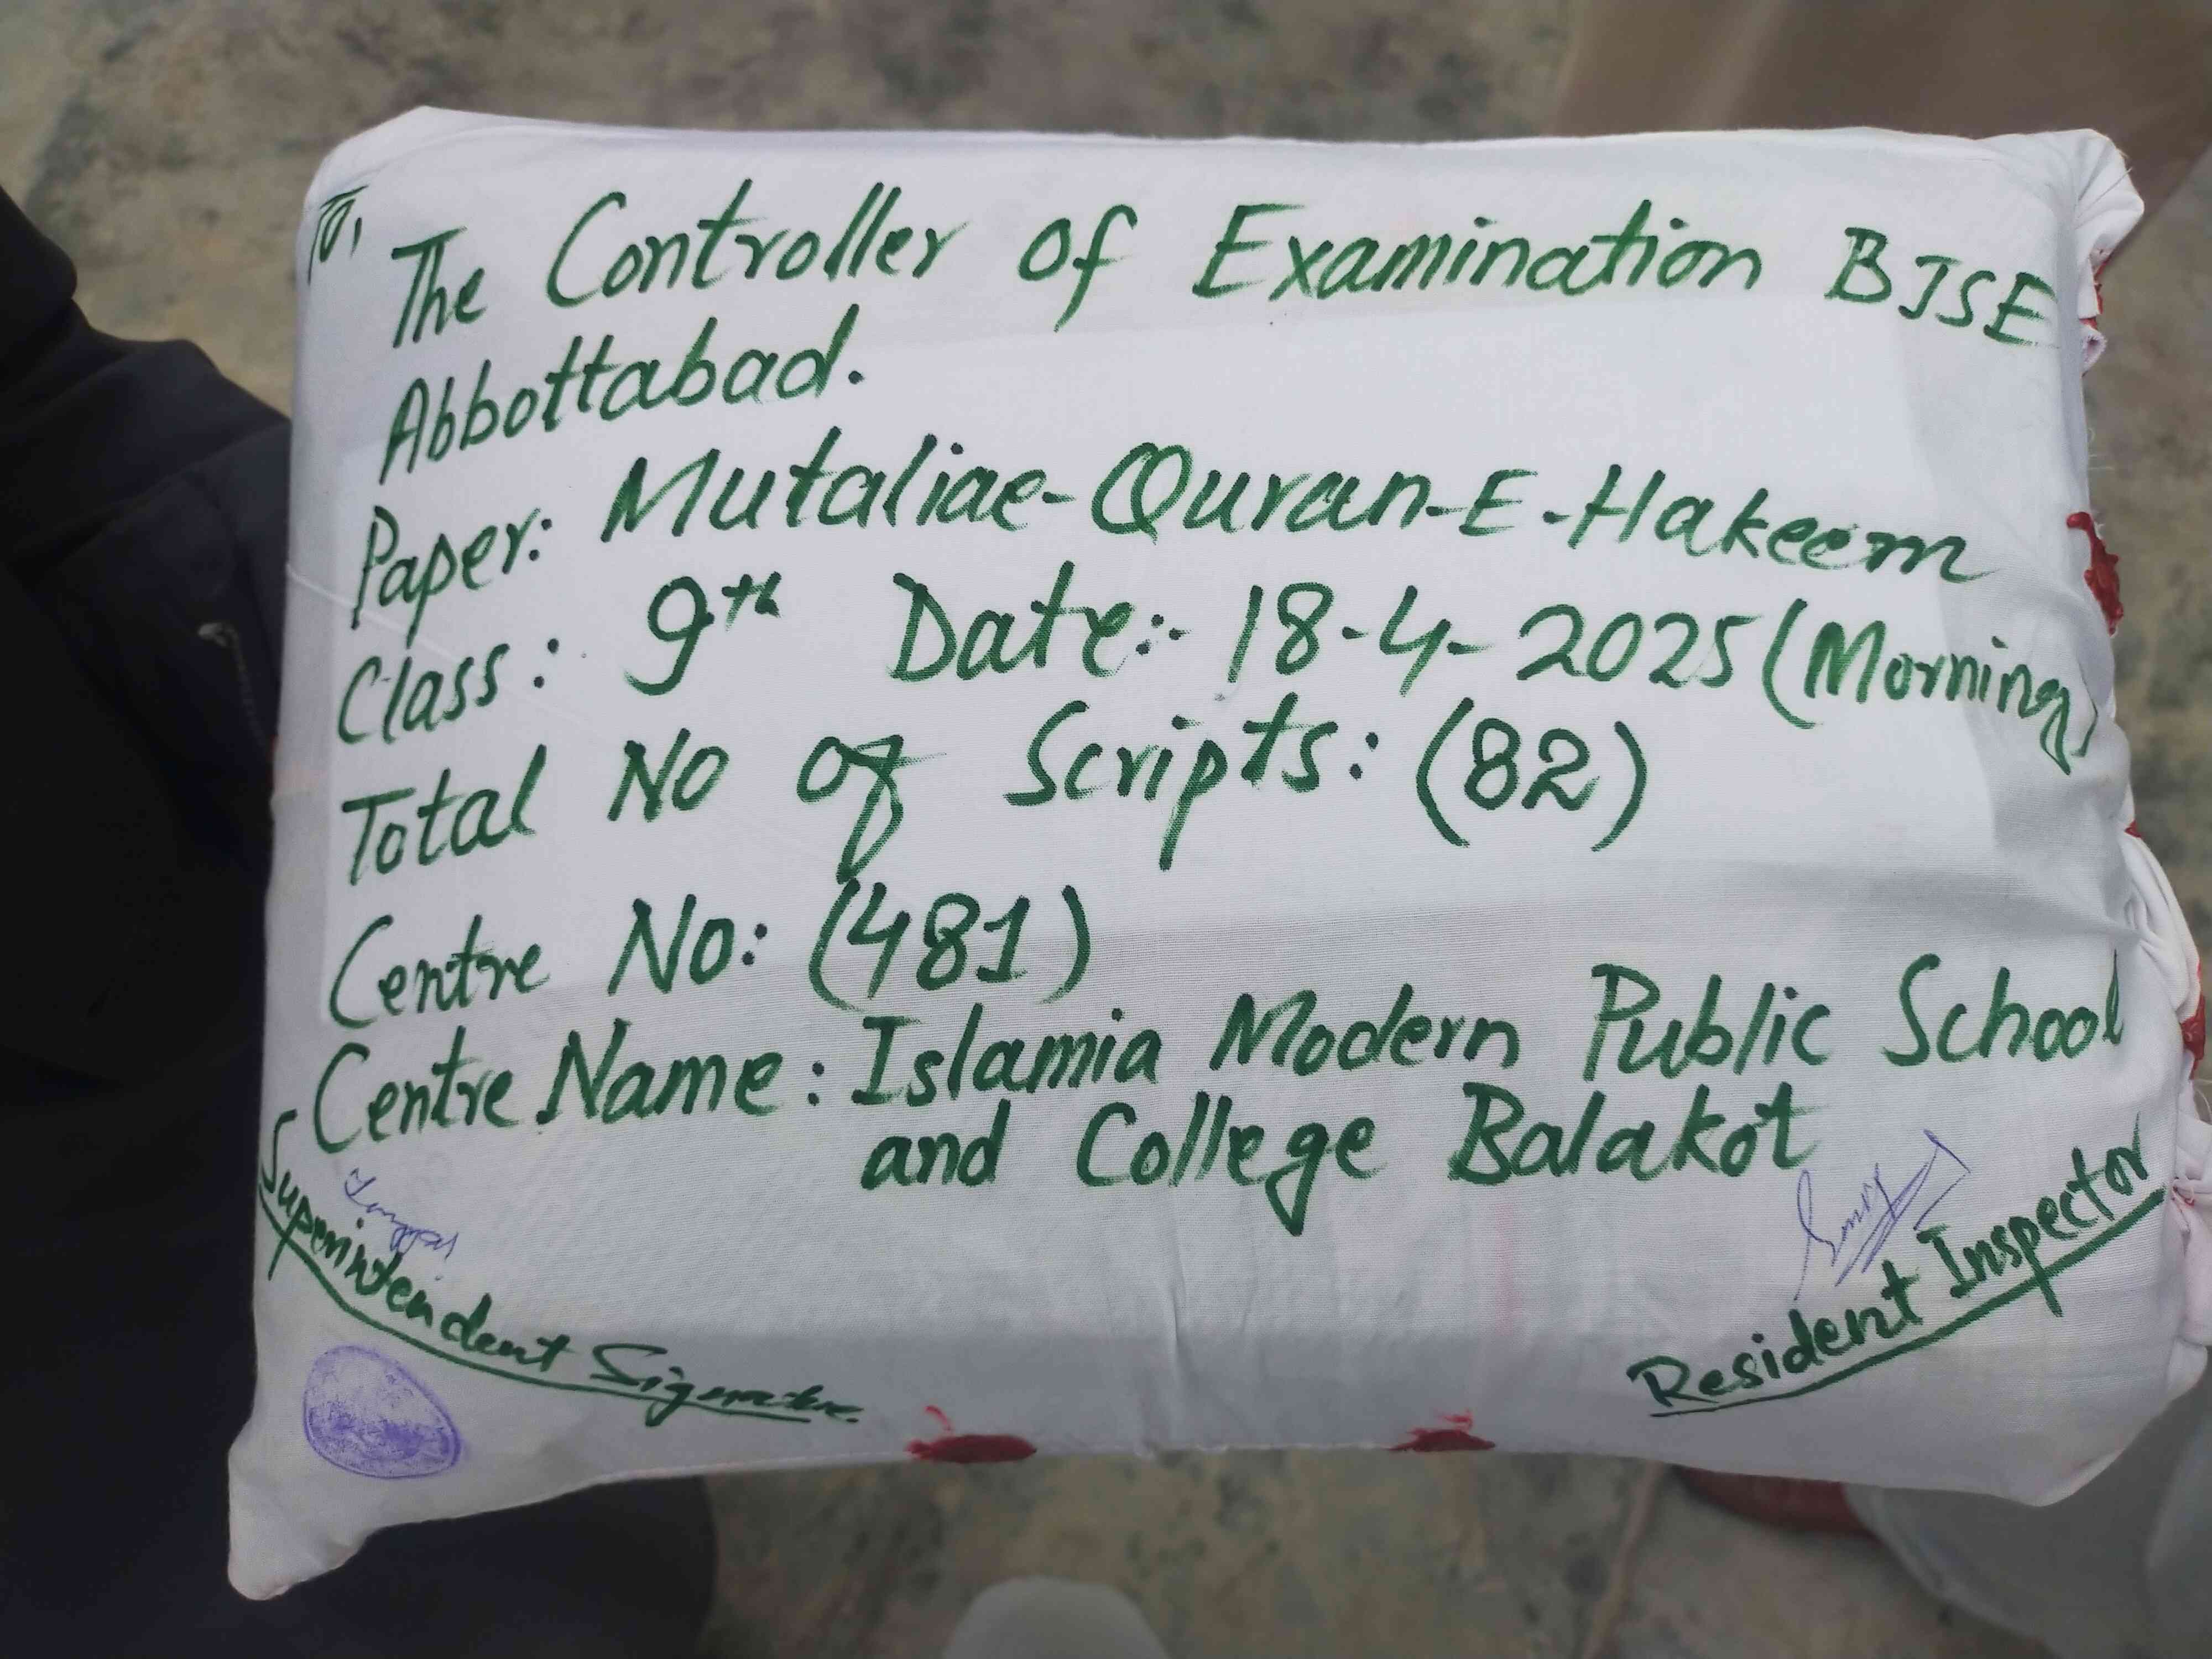 To,
The Controller of Examination BISE
Abbottabad.
Paper: Mutaliae-Quran-E-Hakeem
Class: 9th Date:- 18-4-2025 (Morning)
Total No of Scripts: (82)
Centre No: (481)
Centre Name: Islamia Modern Public School
and College Balakot
Superintendent Signature.
Resident Inspector